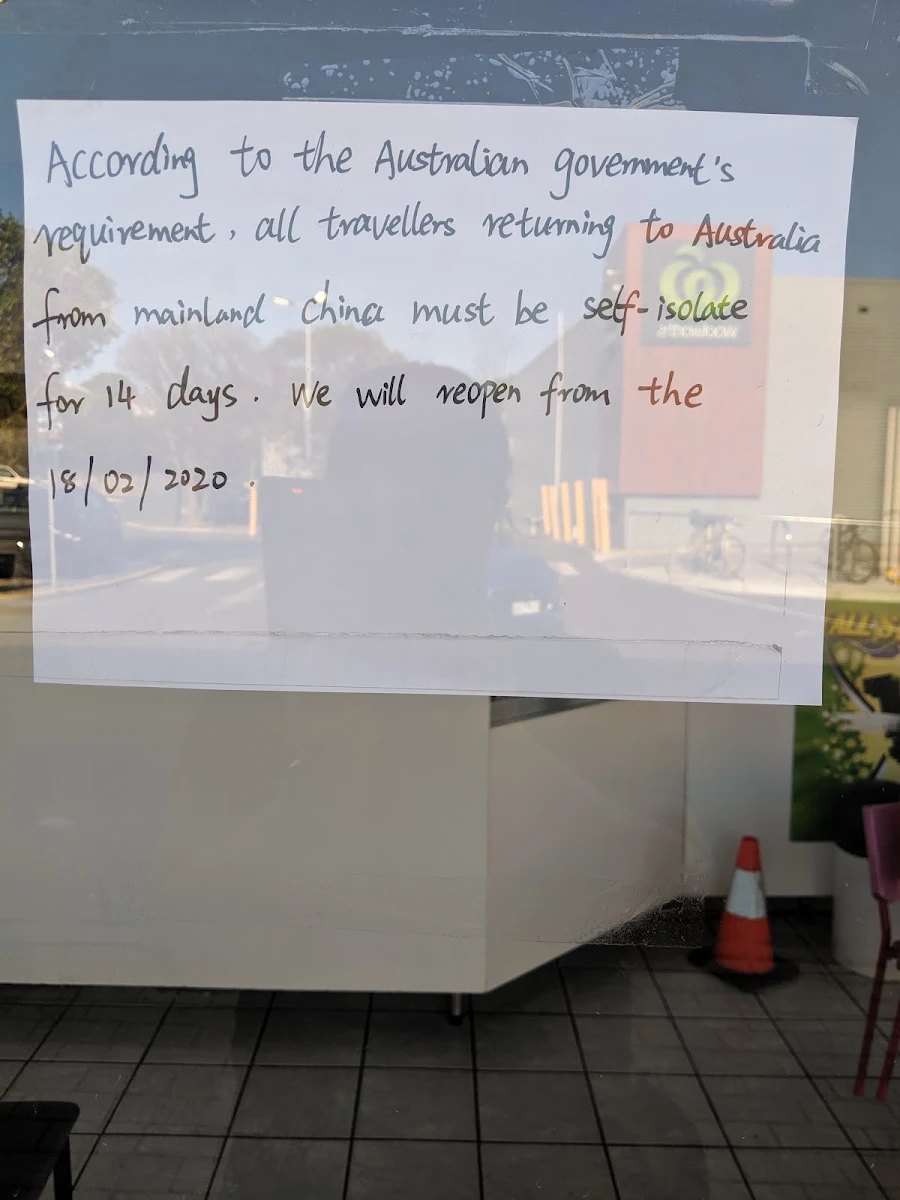 According to the Australian government's
requirement, all travellers returning to Australia
from mainland China must be self-isolate
for 14 days. We will reopen from the
18/02/2020.